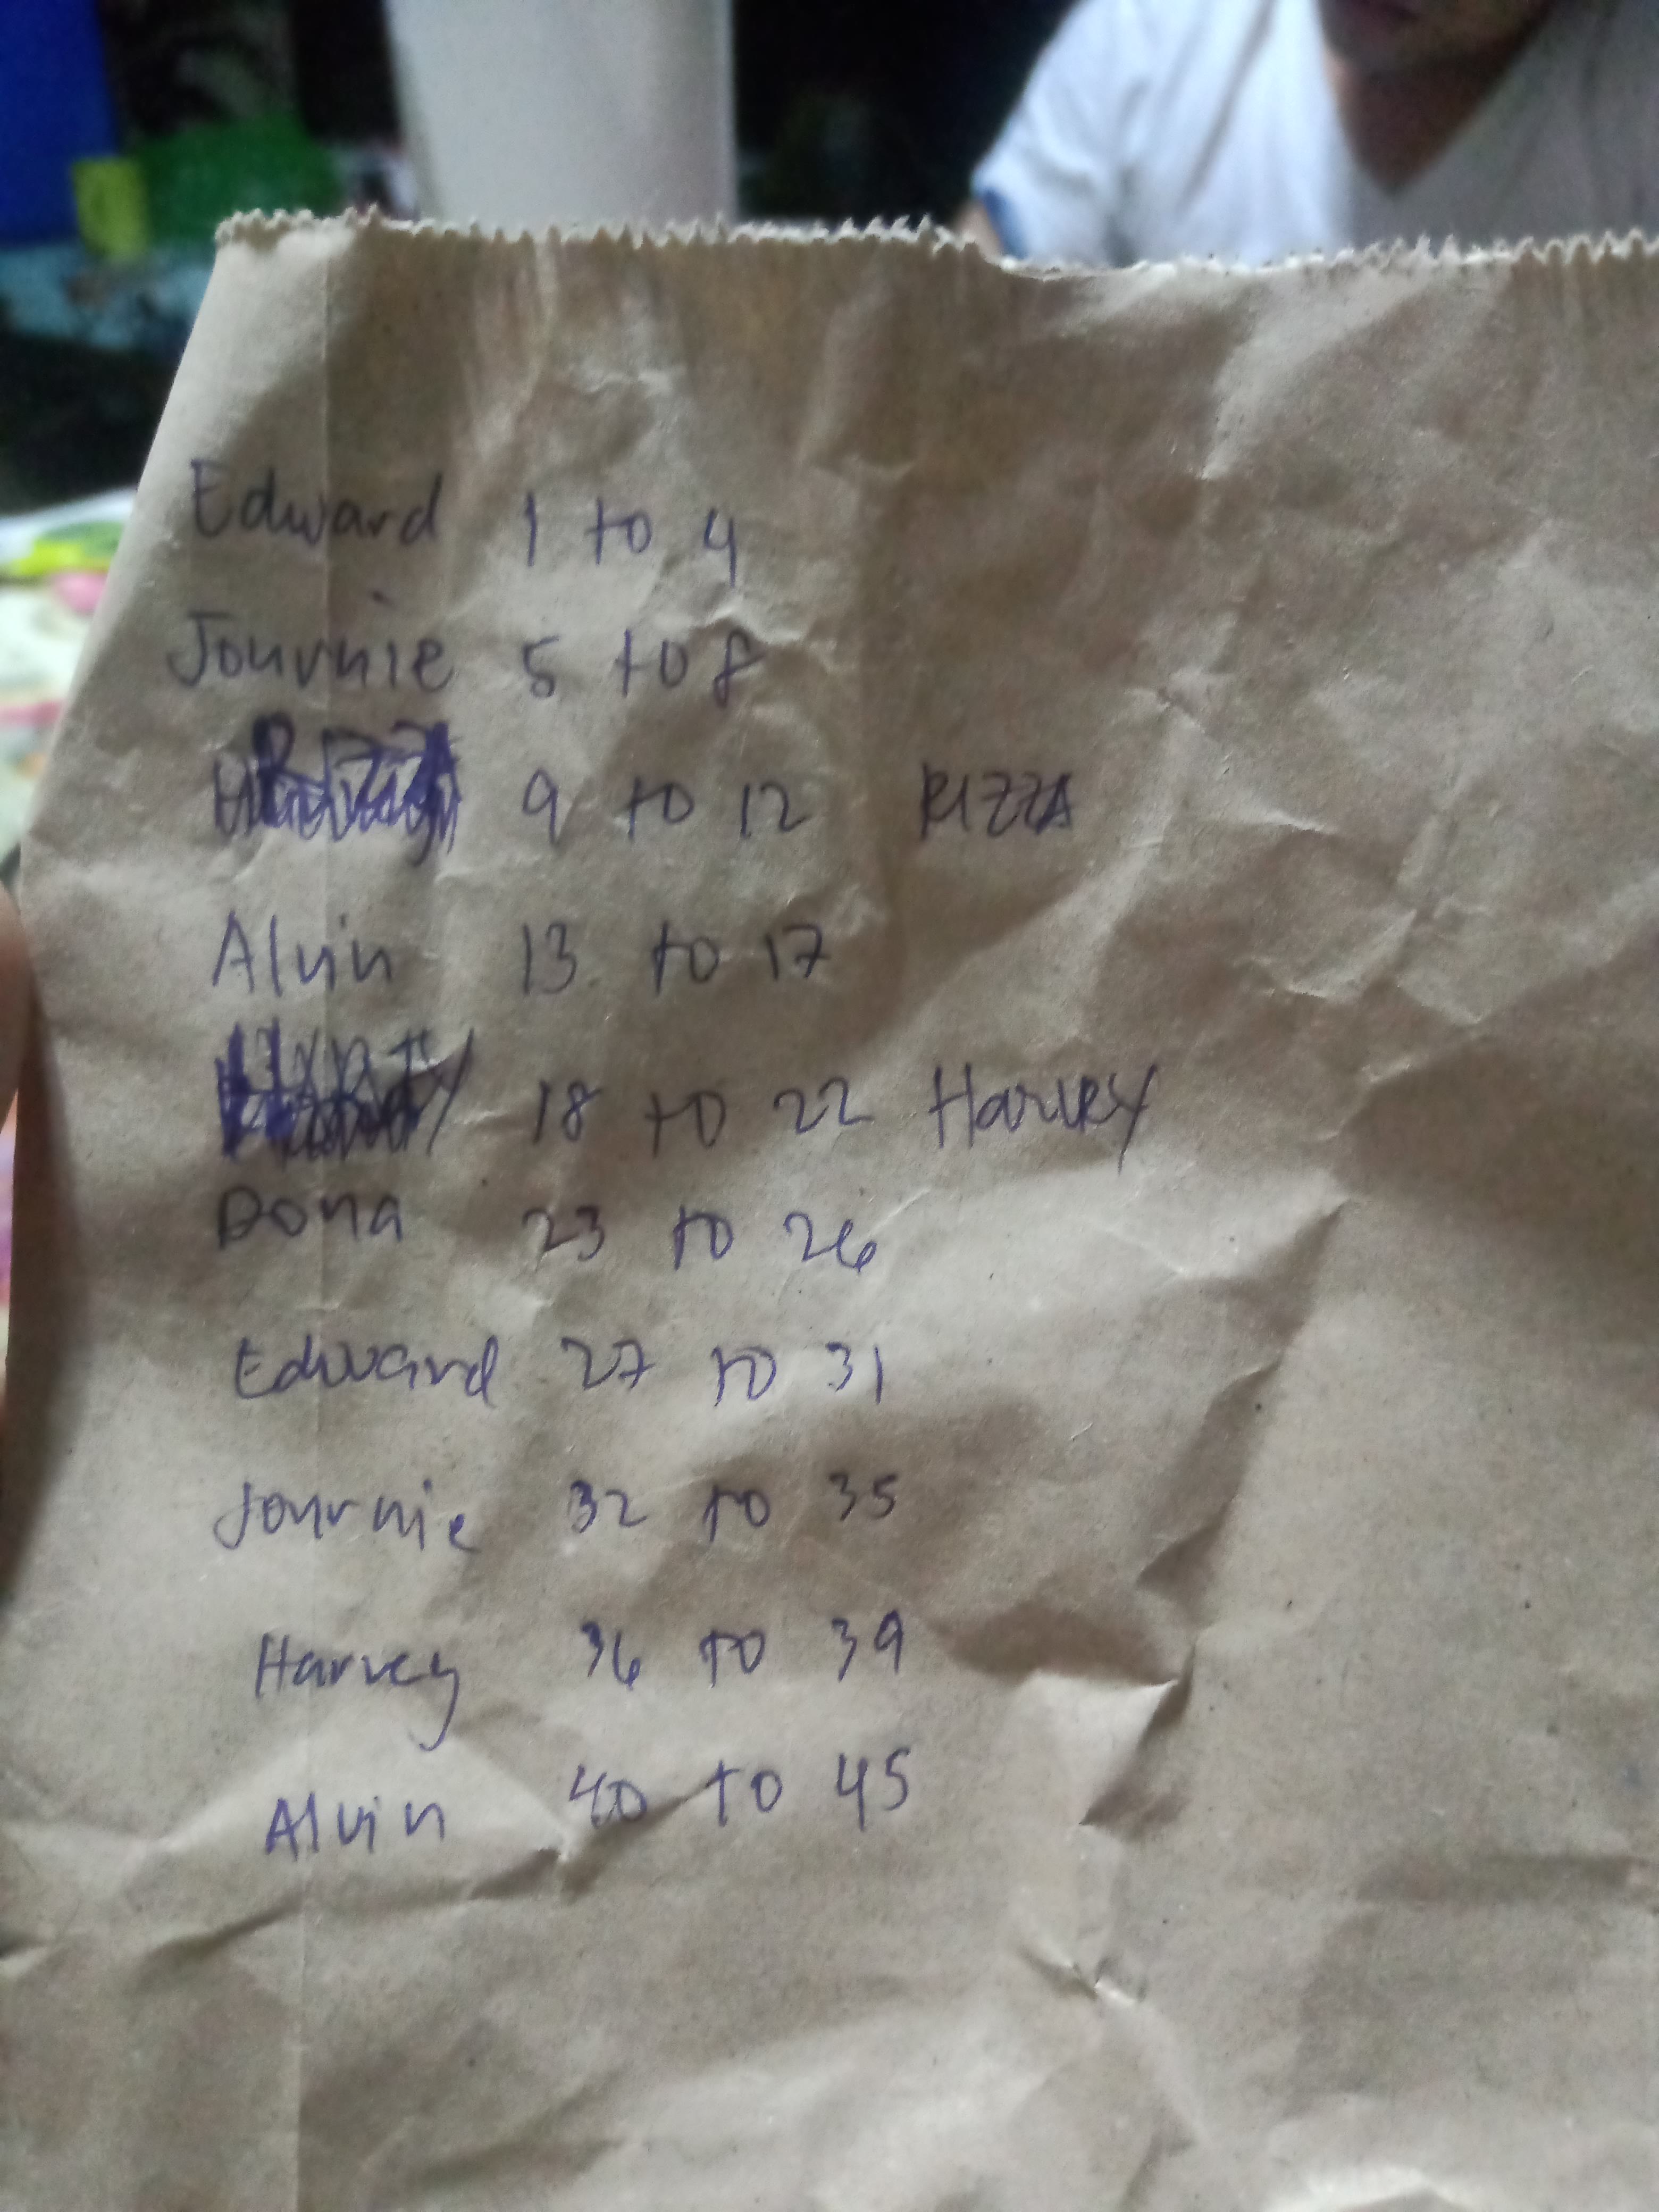 Edward 1 to 4
Journie 5 to 8
9 to 12 RIZZA
Alvin 13 to 17
18 to 22 Harvey
Dona 23 to 26
Edward 27 to 31
Journie 32 to 35
Harvey 36 to 39
Alvin 40 to 45